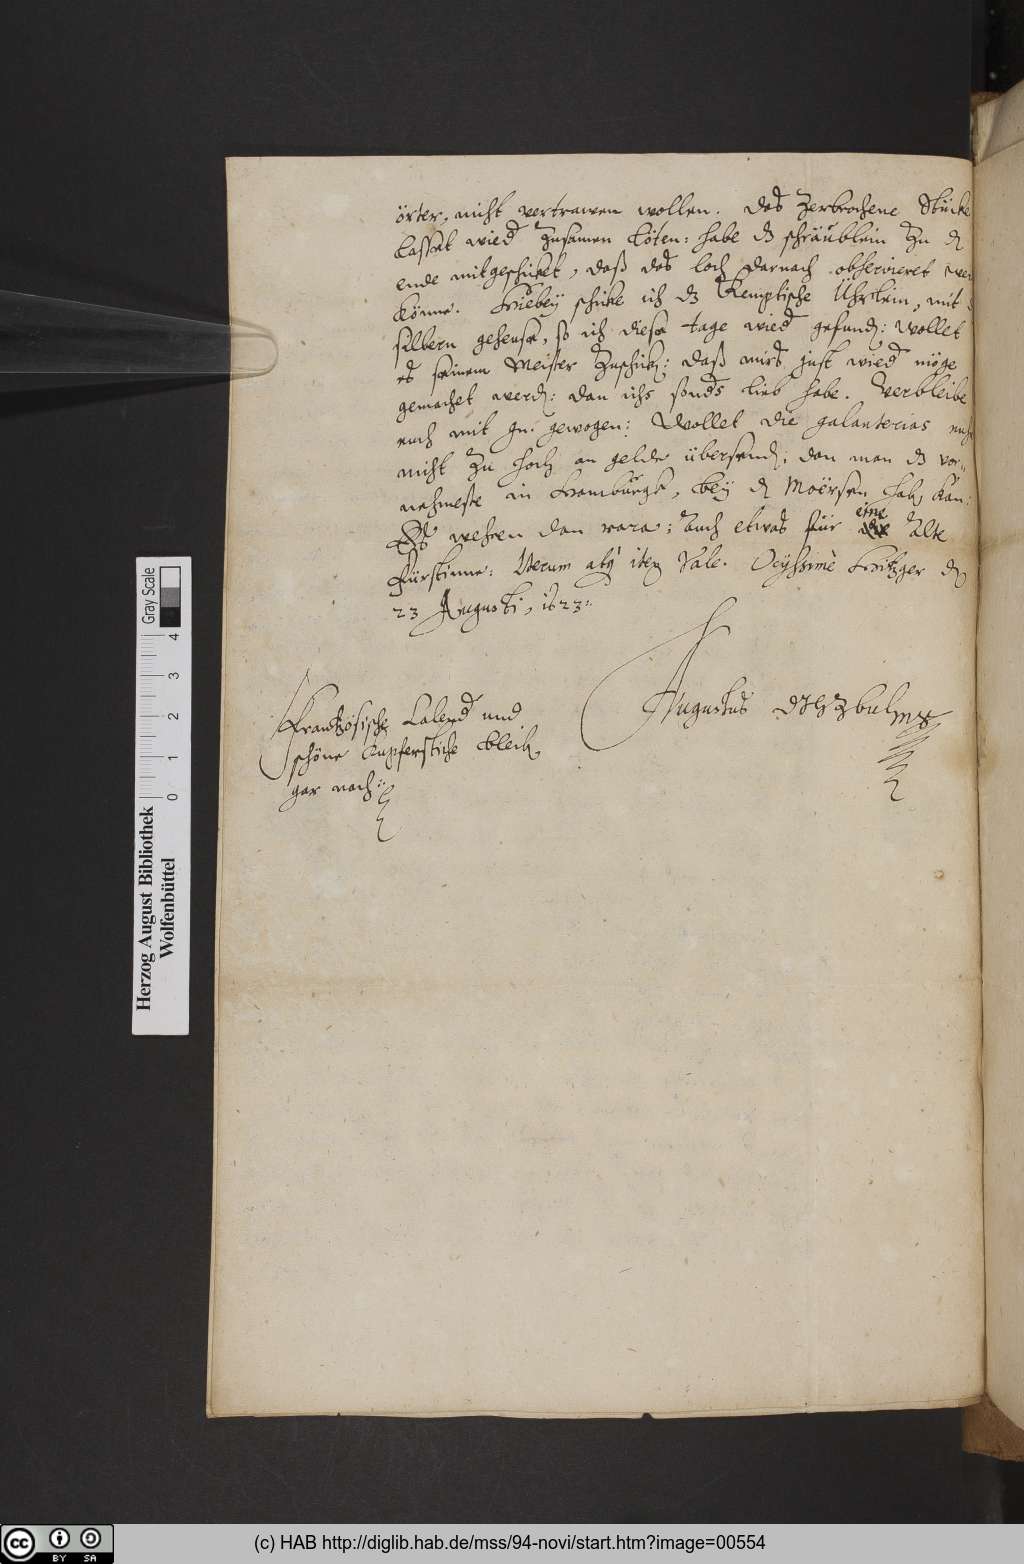 örter, nicht vertrawen wollen. das zerbrochene Stücke
lasset wied zusamen löten: habe dz schräublein zu d
ende mitgeschicket, daß das loch darnach observieret wer
könne. Hiebeÿ schicke ich dz Kemptische Ührlein, mit d
silbern geheuse, so ich diese tage wied gefund: wollet
es seinem Meister zuschick: daß mirs just wied möge
gemachet werd: dan ichs sonds lieb habe. Verbleibe
euch mit gn. gewogen: Wollet die galanterias euch
nicht zu hoch an gelde übersend; dan man dz vor-
nehmeste in Hamburgk, beÿ d Moërsen hab kan:
Es wehren dan rara; auch etwas für eine Alte
Fürstinne: Iterum atq iterum Vale. Ocÿssimè Hitzger d
23 Augusti, 1623:
Augustus DHzBuLmx
Frantzösische Calend und
schöne Kupferstiche bleib
gar nach:
Herzog August Bibliothek
Wolfenbüttel
Gray Scale
0 1 2 3 4
(c) HAB http://diglib.hab.de/mss/94-novi/start.htm?image=00554
cc BY SA